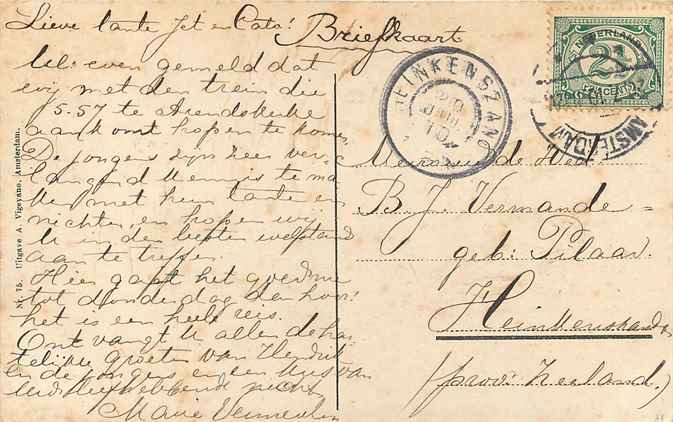 Lieve tante Jet en Cato!
Briefkaart
even gemeld dat
wij met den trein die
5.57 te 's Heerendskerke
aankomt hopen te komen.
De jongens zijn zeer ver-
langend kennis te ma-
ken met hun tante en
nichten, en hopen wij
U in den besten welstand
aan te treffen.
Hier gaat het goed
tot Donderdag dan hoor!
het is een heele reis.
Ontvangt U allen de har-
telijke groeten van Hendrik
en de jongens en een kus van
liefhebbende nicht
Marie Vermeulen
Nr. 75. Uitgave A. Vigevano, Amsterdam.
HEINKENSZAND
10
NEDERLAND
2½
2½ CENT
AMSTERDAM
Mevrouw de Wed
B. J. Vermande =
geb: Pilaar.
Heinkenszand
(prov: Zeeland.)